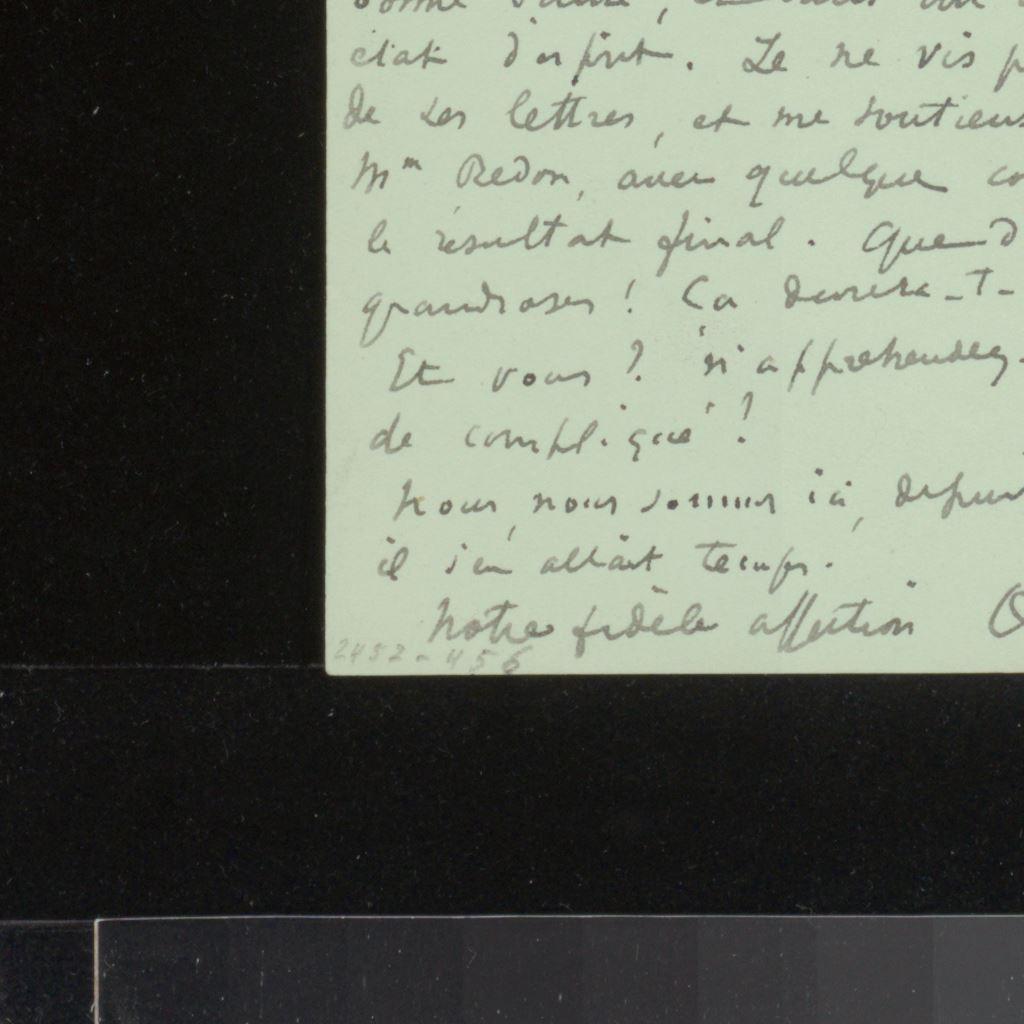 bonne santé, et
état d'esprit. Je ne vis p
de ses lettres, et me soutiens
Mm Redon, avec quelque co
le résultat final. Que d
grandioses! Ca durera-t-
Et vous? n'appréhendez-
de compliqué?
Nous, nous sommes ici, depuis
il s'en allait temps.
Notre fidèle affection O
2452-456